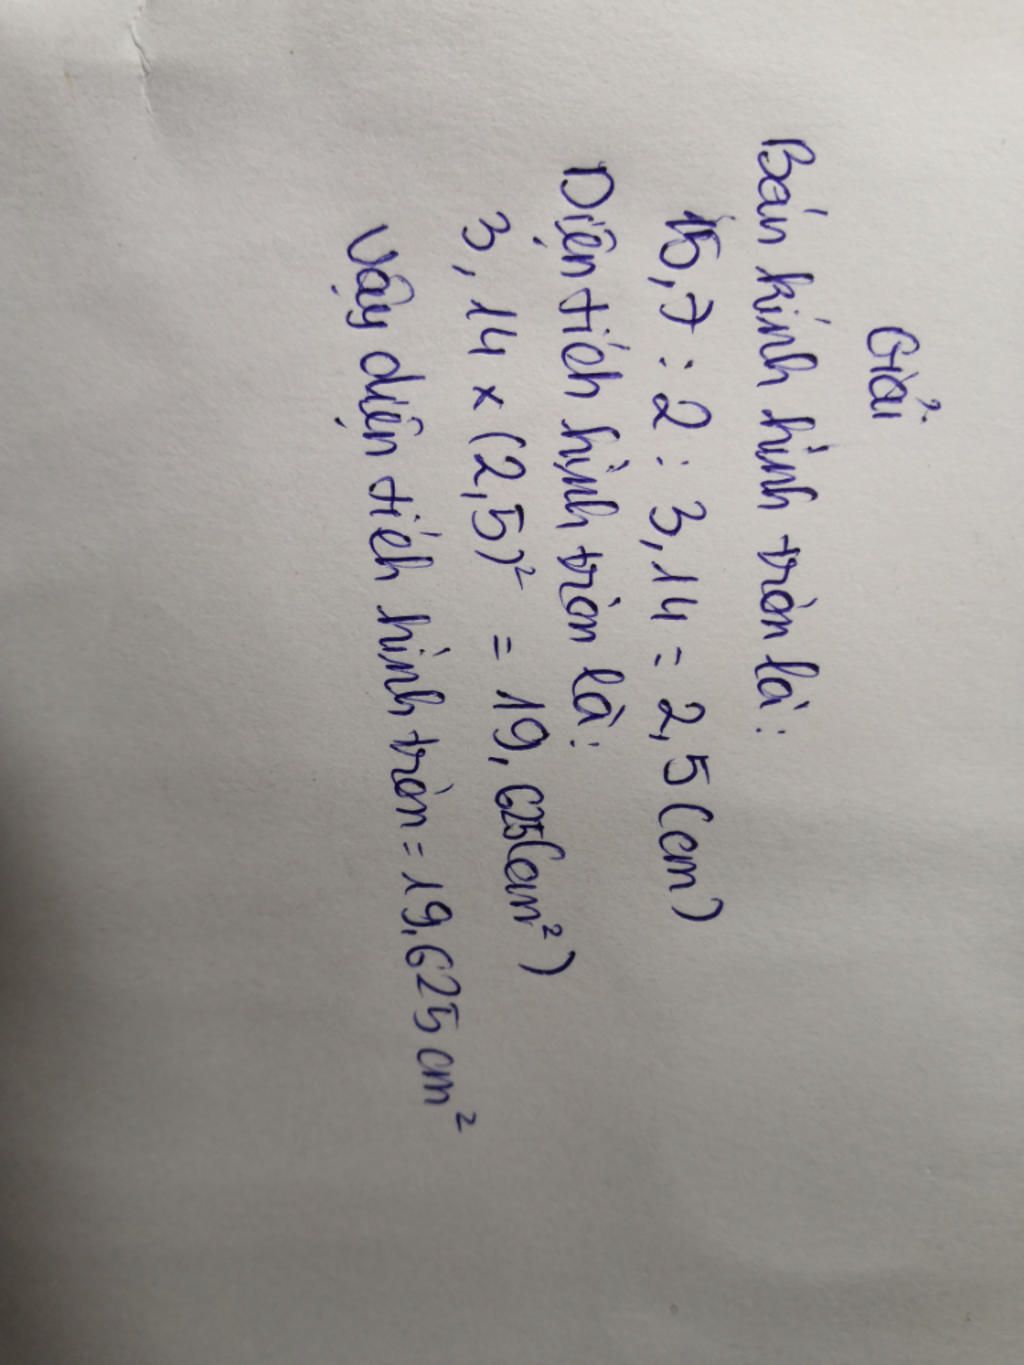 Giải
Bán kính hình tròn là:
15,7 : 2 : 3,14 = 2,5 (cm)
Diện tích hình tròn là:
3,14 × (2,5)² = 19,625 (cm²)
Vậy diện tích hình tròn = 19,625 cm²